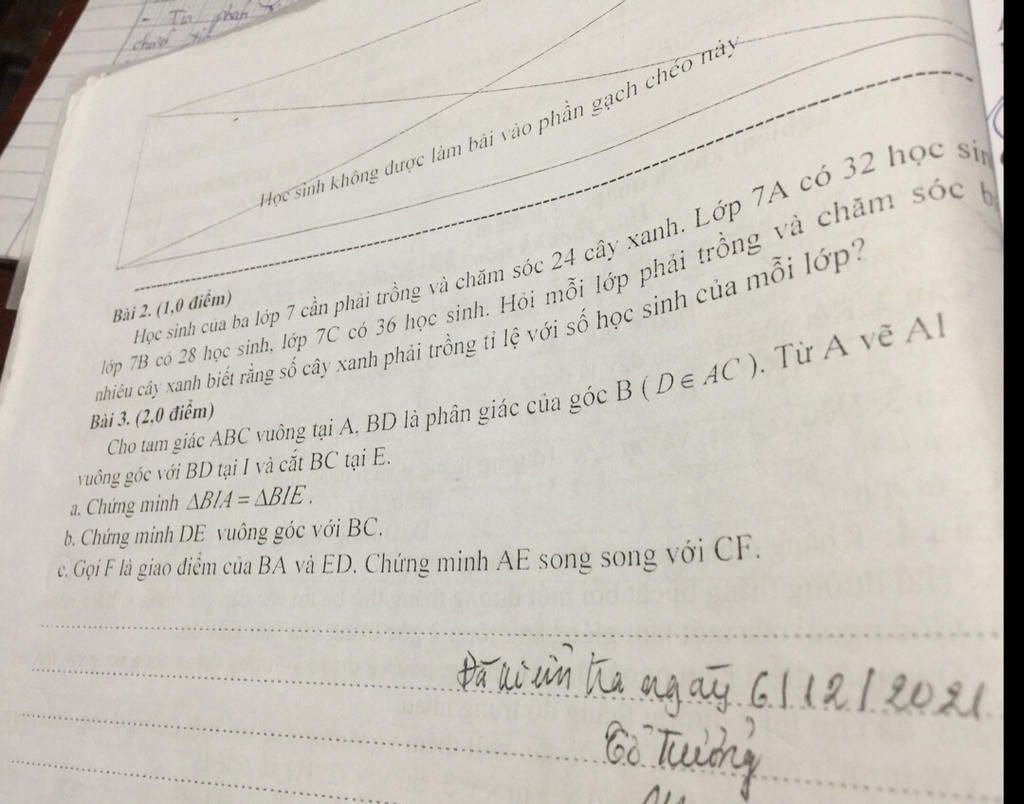 - Từ phan
Học sinh không được làm bài vào phần gạch chéo này
Bài 2. (1,0 điểm)
Học sinh của ba lớp 7 cần phải trồng và chăm sóc 24 cây xanh. Lớp 7A có 32 học sin
lớp 7B có 28 học sinh, lớp 7C có 36 học sinh. Hỏi mỗi lớp phải trồng và chăm sóc b
nhiêu cây xanh biết rằng số cây xanh phải trồng tỉ lệ với số học sinh của mỗi lớp?
Bài 3. (2,0 điểm)
Cho tam giác ABC vuông tại A, BD là phân giác của góc B ( D ∈ AC ). Từ A vẽ AI
vuông góc với BD tại I và cắt BC tại E.
a. Chứng minh ΔBIA = ΔBIE .
b. Chứng minh DE vuông góc với BC.
c. Gọi F là giao điểm của BA và ED. Chứng minh AE song song với CF.
Đã kiểm tra ngày 6/12/2021
Tổ trưởng